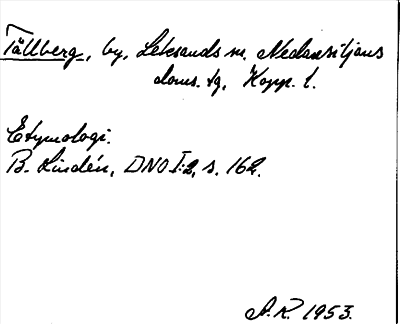 Tällberg, by, Leksands sn. Nedansiljans
doms. tg, Kopp. l.
Etymologi.
B. Lindén, DNO I:2, s. 162.
A.R. 1953.